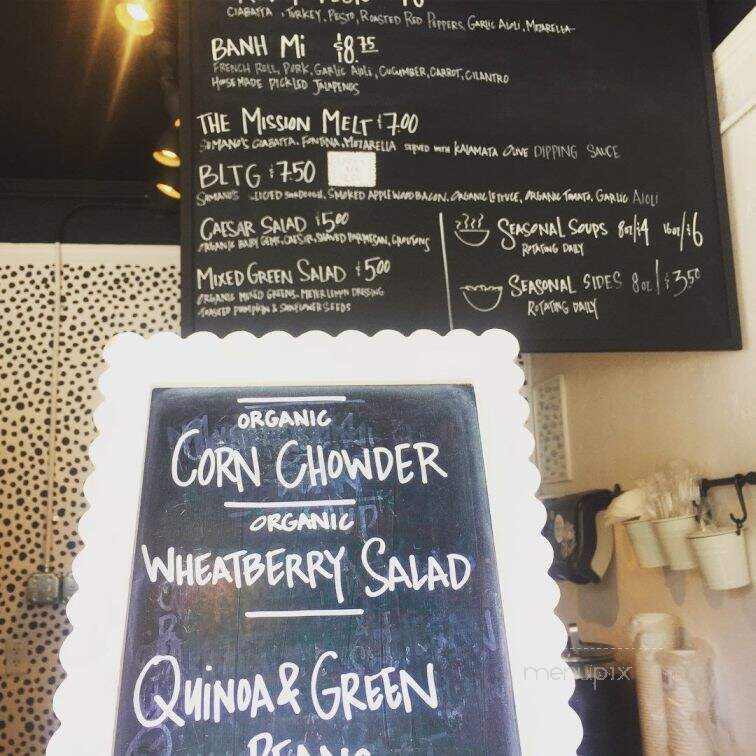 CIABATTA, TURKEY, PESTO, ROASTED RED PEPPERS, GARLIC AIOLI, MOZARELLA
BANH Mi $8.75
FRENCH ROLL, PORK, GARLIC AIOLI, CUCUMBER, CARROT, CILANTRO
HOUSEMADE PICKLED JALAPENOS
THE MISSION MELT $7.00
SUMANO'S CIABATTA, FONTINA, MOZARELLA SERVED WITH KALAMATA OLIVE DIPPING SAUCE
BLTG $7.50
SUMANO'S SLICED SOURDOUGH, SMOKED APPLEWOOD BACON, ORGANIC LETTUCE, ORGANIC TOMATO, GARLIC AIOLI
CAESAR SALAD $5.00
ORGANIC BABY GEMS, CAESAR, SHAVED PARMESAN, CROUTONS
MIXED GREEN SALAD $5.00
ORGANIC MIXED GREENS, MEYER LEMON DRESSING
TOASTED PUMPKIN & SUNFLOWER SEEDS
SEASONAL SOUPS 8oz/$4 16oz/$6
ROTATING DAILY
SEASONAL SIDES 8oz/$3.50
ROTATING DAILY
ORGANIC
CORN CHOWDER
ORGANIC
WHEATBERRY SALAD
QUINOA & GREEN
BEANS
menupix